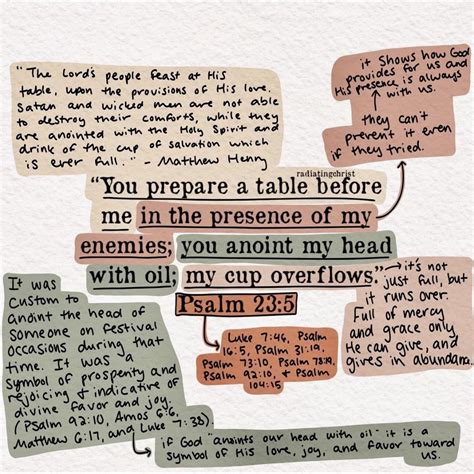 "The Lord's people feast at His
table, upon the provisions of His love.
Satan and wicked men are not able
to destroy their comforts, while they
are anointed with the Holy Spirit and
drink of the cup of salvation which
is ever full." - Matthew Henry
it shows how God
provides for us and
His presence is always
with us.
they can't
prevent it even
if they tried.
radiatingchrist
"You prepare a table before
me in the presence of my
enemies; you anoint my head
with oil; my cup overflows."
Psalm 23:5
it's not
just full, but
it runs over.
Full of mercy
and grace only
He can give, and
gives in abundam.
It was
custom to
anoint the head of
someone on festival
occasions during that
time. It was a
symbol of prosperity and
rejoicing & indicative of
divine favor and joy.
(Psalm 92:10, Amos 6:6,
Matthew 6:17, and Luke 7:38).
Luke 7:46, Psalm
16:5, Psalm 31:19,
Psalm 73:10, Psalm 78:19,
Psalm 92:10, & Psalm
104:15
if God "anoints our head with oil" it is a
symbol of His love, joy, and favor toward
us.